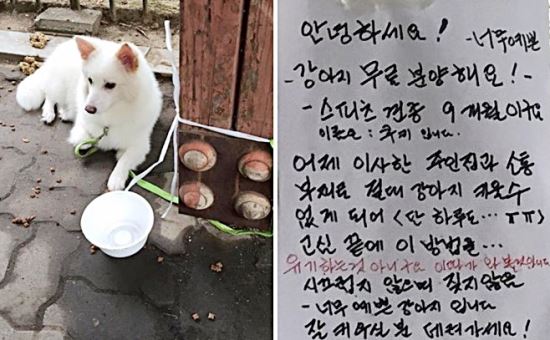 안녕하세요!
-너무예쁜
-강아지 무료 분양해요!-
- 스피츠 견종 9개월이구요
이름은 : 입니다.
어제 이사한 주인집과 소통
부재로 절대 강아지 키울수
없게 되어 <단 하루도... ㅠㅠ>
고심 끝에 이 방법을...
유기하는것 아니구요 이따가 와 볼것입니다
시끄럽지 않으며 짖지않은
-너무 예쁜 강아지 입니다
잘 키우실 분 데려가세요!